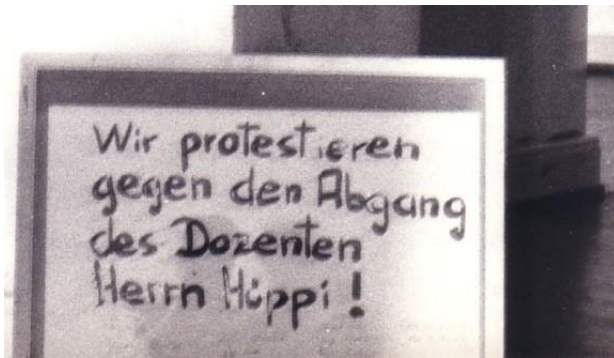 Wir protestieren
gegen den Abgang
des Dozenten
Herrn Hüppi !